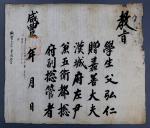 教旨
學生父弘仁
贈嘉善大夫
漢城府左尹
兼五衛都摠
府副摠管者
咸豐 年 月 日